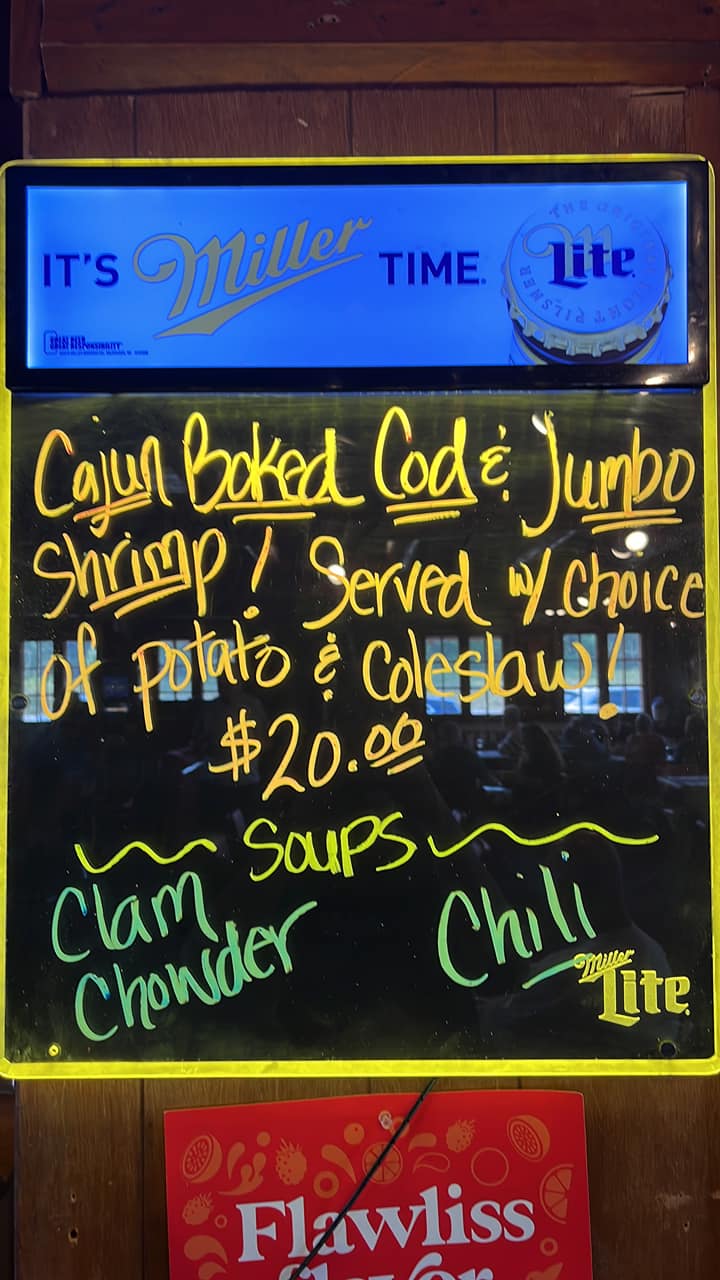 IT'S Miller TIME.
THE ORIGINAL LIGHT PILSNER
Lite
GREAT BEER
GREAT RESPONSIBILITY
Cajun Baked Cod & Jumbo
Shrimp! Served w/ choice
of potato & Coleslaw!
$20.00
Soups
Clam
Chowder
Chili
Miller
Lite
Flawliss
flavor